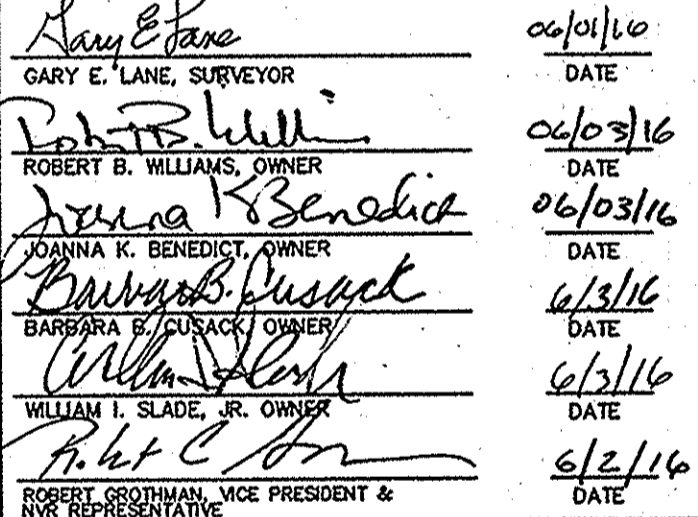 Gary E Lane 06/01/16
GARY E. LANE, SURVEYOR DATE
Robert B. Williams 06/03/16
ROBERT B. WILLIAMS, OWNER DATE
Joanna K Benedict 06/03/16
JOANNA K. BENEDICT, OWNER DATE
Barbara B. Cusack 6/3/16
BARBARA B. CUSACK, OWNER DATE
6/3/16
WILLIAM I. SLADE, JR. OWNER DATE
Robert C 6/2/16
ROBERT GROTHMAN, VICE PRESIDENT & DATE
NVR REPRESENTATIVE